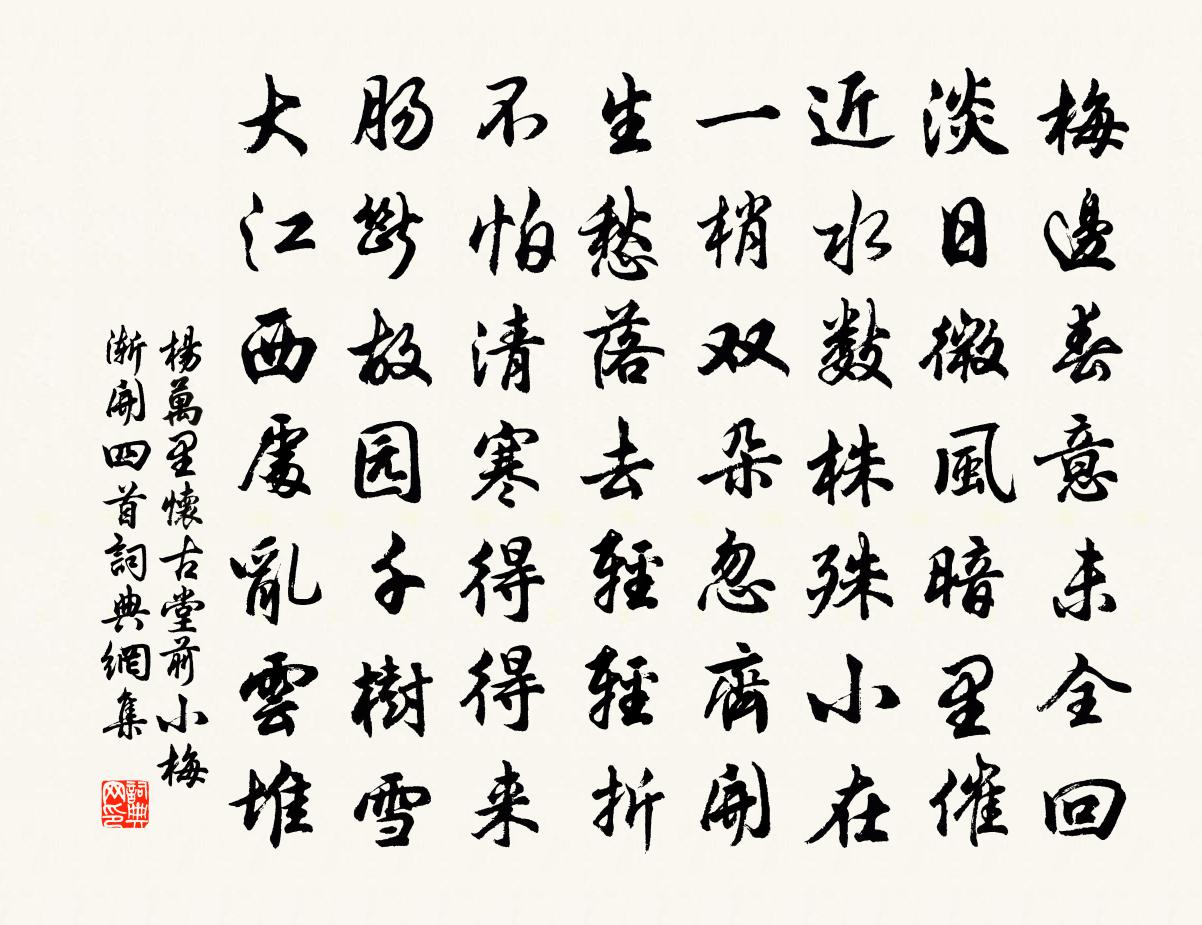 梅邊春意未全回
淡日微風暗里催
近水數株殊小在
一梢双朵忽齊開
生愁落去輕輕折
不怕清寒得得来
腸斷故园千樹雪
大江西處亂雲堆
楊萬里懷古堂前小梅
漸開四首詞典網集
詞典网印